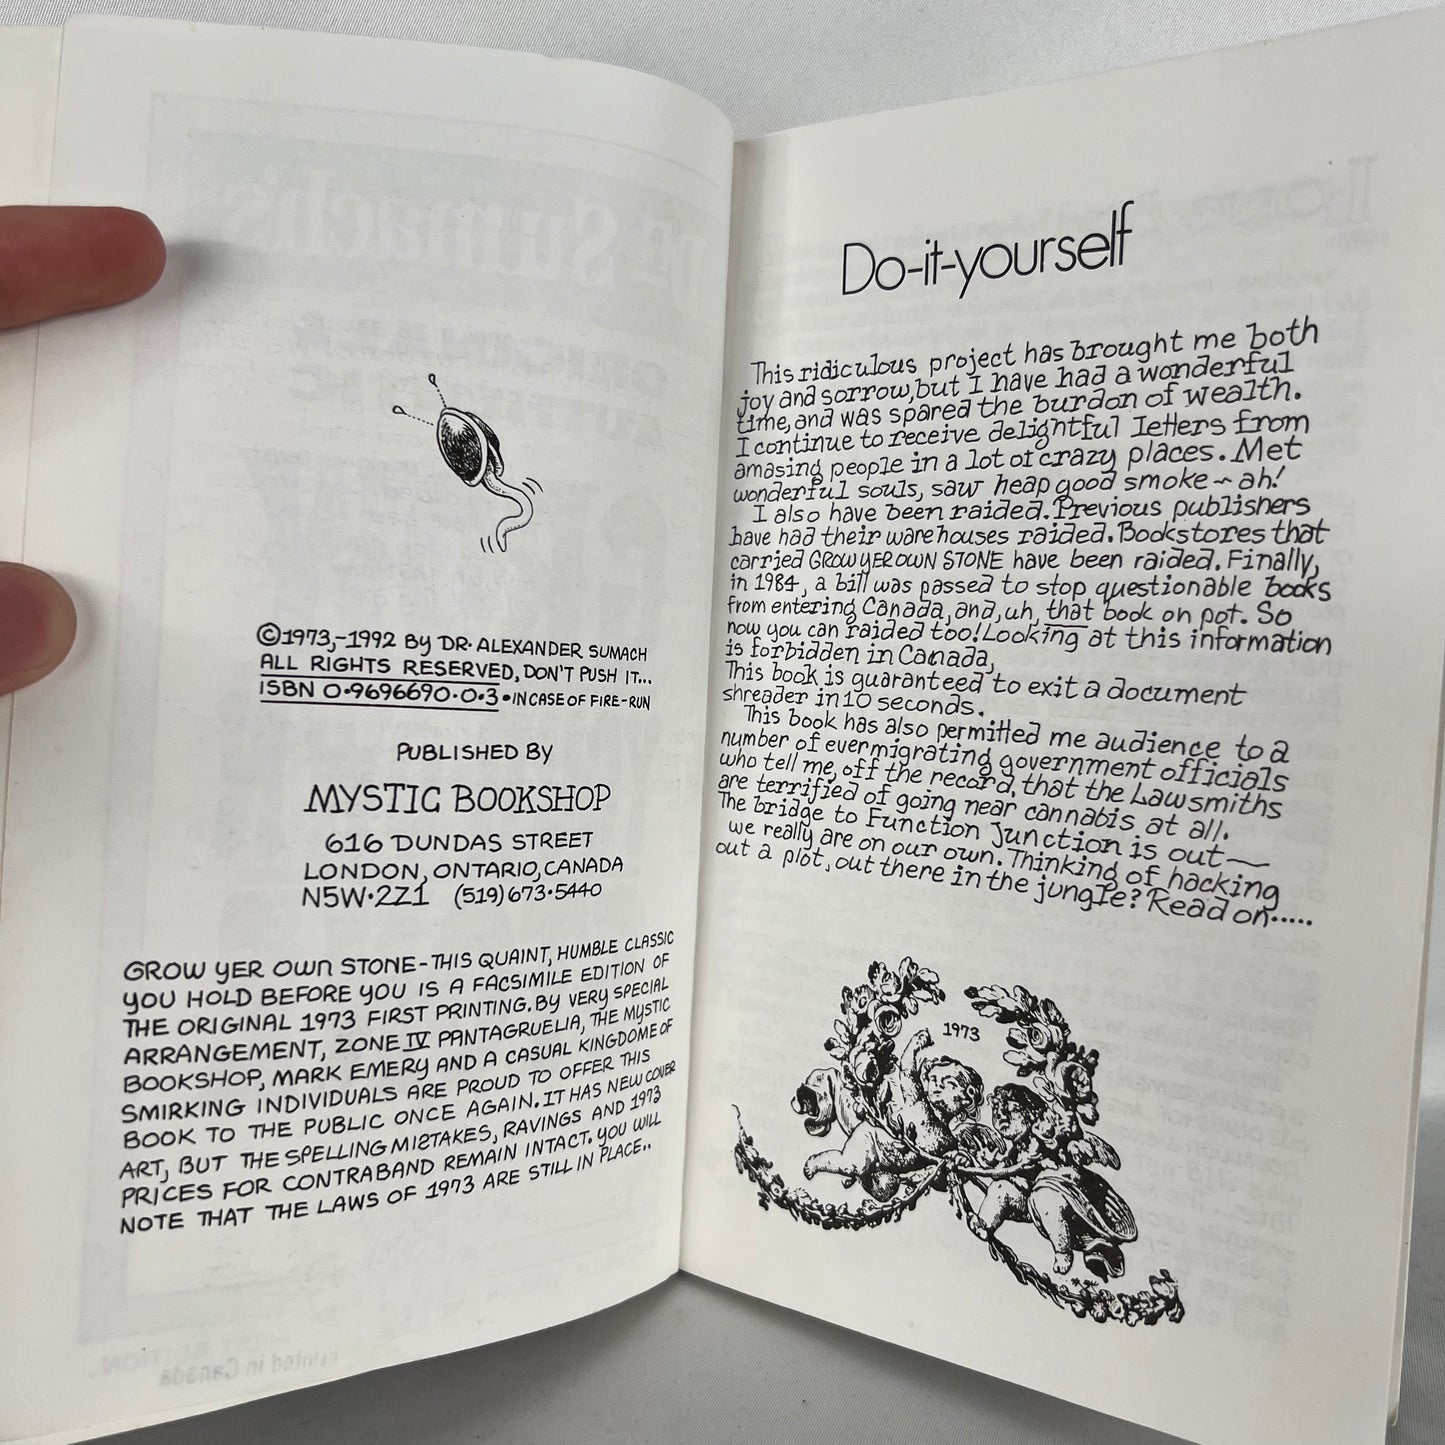 ©1973,-1992 BY DR. ALEXANDER SUMACH
ALL RIGHTS RESERVED, DON'T PUSH IT...
ISBN 0•9696690•0•3•IN CASE OF FIRE-RUN
PUBLISHED BY
MYSTIC BOOKSHOP
616 DUNDAS STREET
LONDON, ONTARIO, CANADA
N5W•2Z1 (519)673•5440
GROW YER OWN STONE-THIS QUAINT, HUMBLE CLASSIC
YOU HOLD BEFORE YOU IS A FACSIMILE EDITION OF
THE ORIGINAL 1973 FIRST PRINTING. BY VERY SPECIAL
ARRANGEMENT, ZONE IV PANTAGRUELIA, THE MYSTIC
BOOKSHOP, MARK EMERY AND A CASUAL KINGDOME OF
SMIRKING INDIVIDUALS ARE PROUD TO OFFER THIS
BOOK TO THE PUBLIC ONCE AGAIN. IT HAS NEW COVER
ART, BUT THE SPELLING MISTAKES, RAVINGS AND 1973
PRICES FOR CONTRABAND REMAIN INTACT. YOU WILL
NOTE THAT THE LAWS OF 1973 ARE STILL IN PLACE..
Do-it-yourself
This ridiculous project has brought me both
joy and sorrow, but I have had a wonderful
time, and was spared the burdon of wealth.
I continue to receive delightful letters from
amasing people in a lot of crazy places. Met
wonderful souls, saw heap good smoke ~ ah!
I also have been raided. Previous publishers
have had their warehouses raided. Bookstores that
carried GROW YER OWN STONE have been raided. Finally,
in 1984, a bill was passed to stop questionable books
from entering Canada, and, uh, that book on pot. So
now you can raided too! Looking at this information
is forbidden in Canada,
This book is guaranteed to exit a document
shreader in 10 seconds.
This book has also permitted me audience to a
number of evermigrating government officials
who tell me, off the record, that the Lawsmiths
are terrified of going near cannabis at all.
The bridge to Function Junction is out—
we really are on our own. Thinking of hacking
out a plot, out there in the jungle? Read on.....
1973